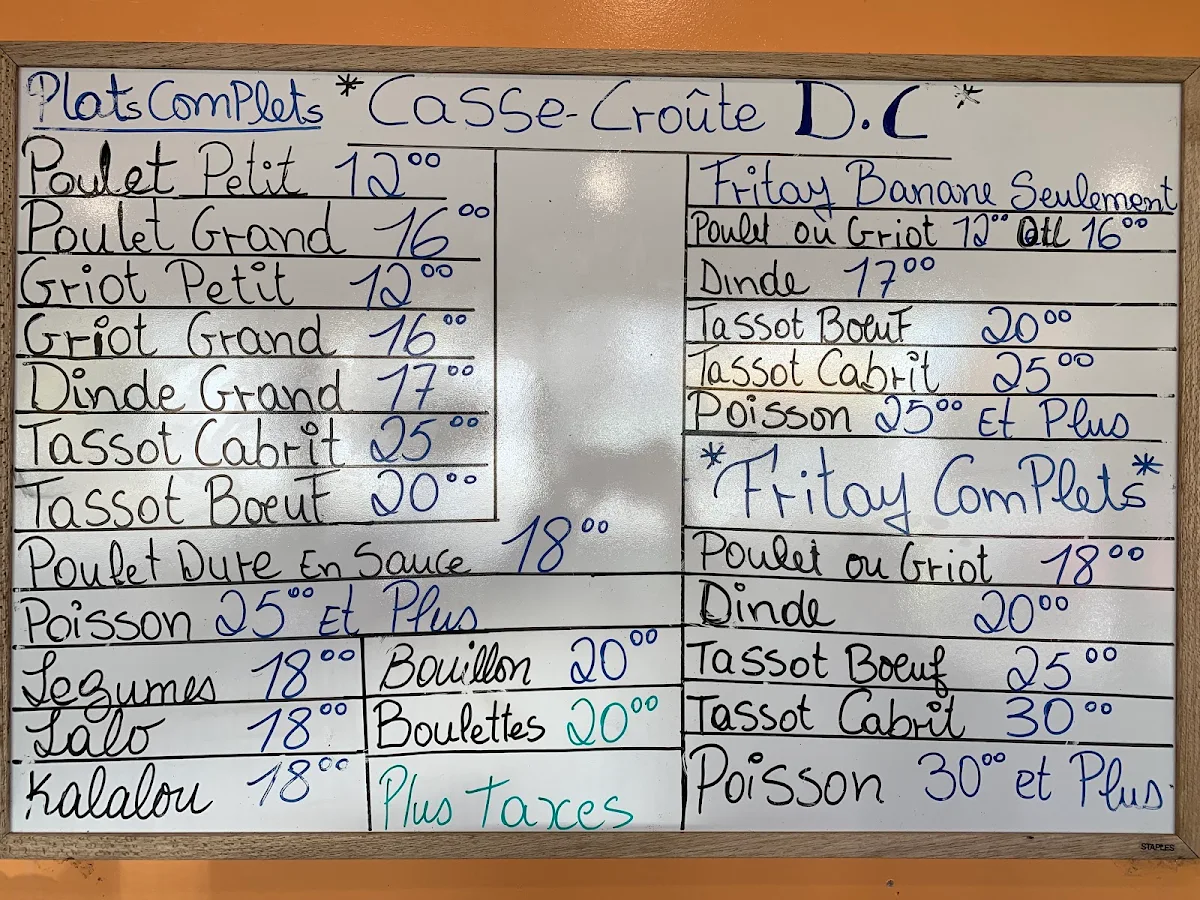 Plats Complets
*Casse-Croûte D.C*
Poulet Petit 12⁰⁰
Poulet Grand 16⁰⁰
Griot Petit 12⁰⁰
Griot Grand 16⁰⁰
Dinde Grand 17⁰⁰
Tassot Cabrit 25⁰⁰
Tassot Boeuf 20⁰⁰
Poulet Dure En Sauce 18⁰⁰
Poisson 25⁰⁰ Et Plus
Legumes 18⁰⁰
Lalo 18⁰⁰
Kalalou 18⁰⁰
Bouillon 20⁰⁰
Boulettes 20⁰⁰
Plus Taxes
Fritay Banane Seulement
Poulet ou Griot 12⁰⁰ 16⁰⁰
Dinde 17⁰⁰
Tassot Boeuf 20⁰⁰
Tassot Cabrit 25⁰⁰
Poisson 25⁰⁰ Et Plus
*Fritay Complets*
Poulet ou Griot 18⁰⁰
Dinde 20⁰⁰
Tassot Boeuf 25⁰⁰
Tassot Cabrit 30⁰⁰
Poisson 30⁰⁰ et Plus
STAPLES